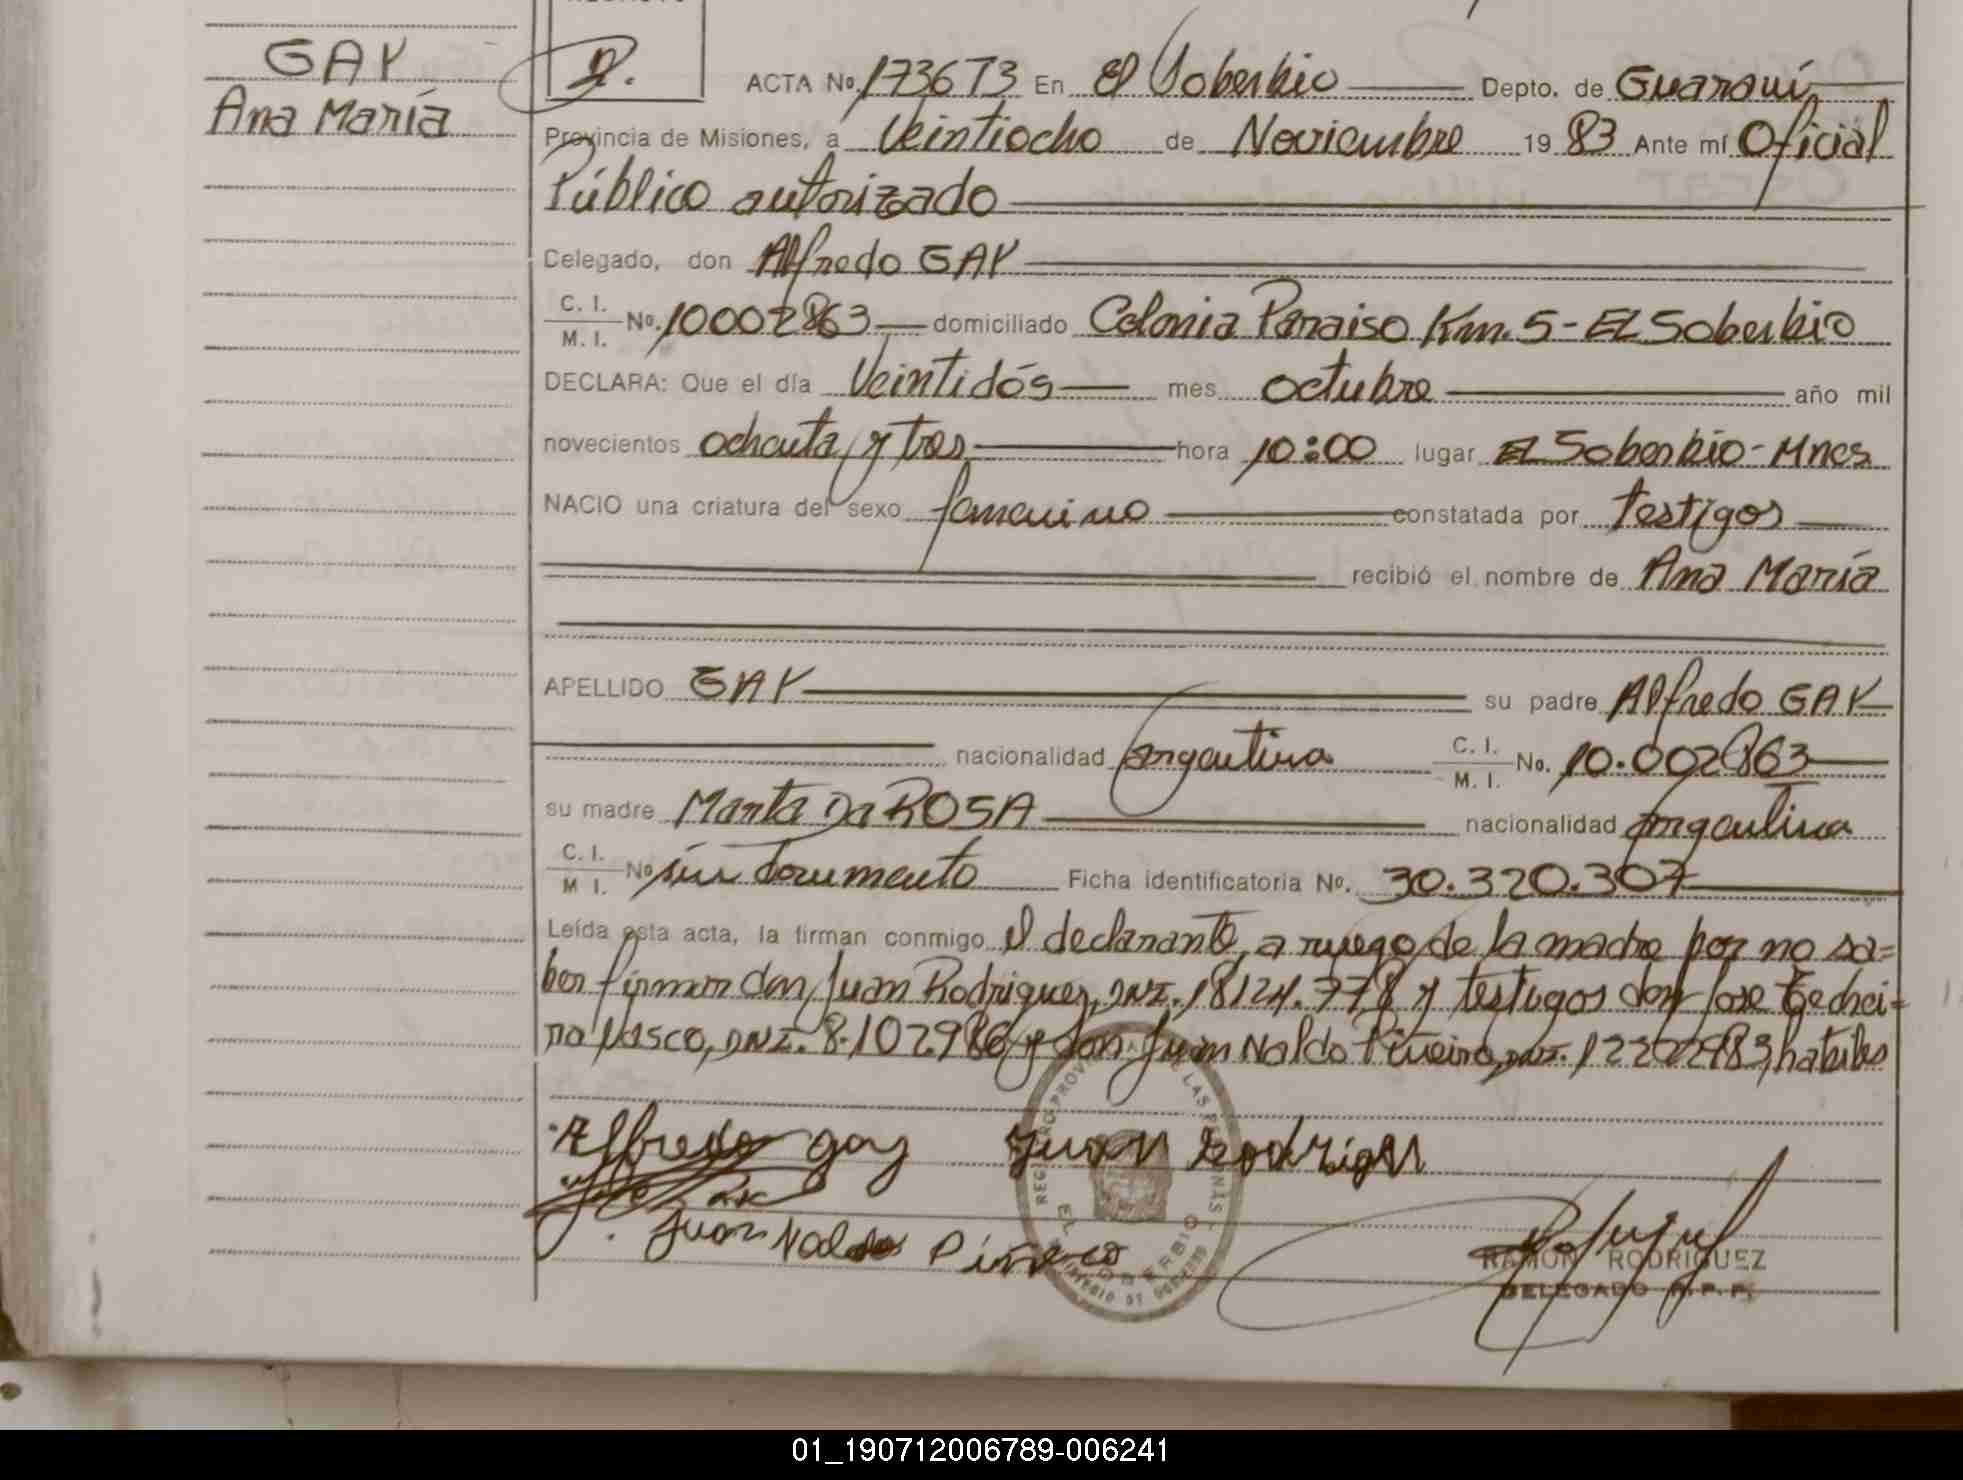 GAY
Ana María
2.
ACTA No. 173673 En El Soberbio Depto. de Guaraní
Provincia de Misiones, a Veintiocho de Noviembre 19 83 Ante mí Oficial
Público autorizado
Delegado, don Alfredo GAY
C. I.
M. I. No. 10002863 domiciliado Colonia Paraiso Km. 5 - EL Soberbio
DECLARA: Que el día Veintidós mes octubre año mil
novecientos ochenta y tres hora 10:00 lugar EL Soberbio - Mnes
NACIO una criatura del sexo femenino constatada por testigos
recibió el nombre de Ana María
APELLIDO GAY su padre Alfredo GAY
nacionalidad argentina C. I.
M. I. No. 10.002863
su madre Marta Da ROSA nacionalidad argentina
C. I.
M I. No sin documento Ficha identificatoria No. 30.320.307
Leída esta acta, la firman conmigo el declarante, a ruego de la madre por no sa=
ber firmar don Juan Rodriguez, DNI. 18124.778 y testigos don Jose
Vasco, DNI. 8.102.986 y don Juan Naldo Piñeiro, DNI. 12202983, habiles
Alfredo gay Juan Rodrigez
Juan Naldo Piñeiro
EL SOBERBIO
RAMON RODRIGUEZ
DELEGADO R. P. P.
01_190712006789-006241